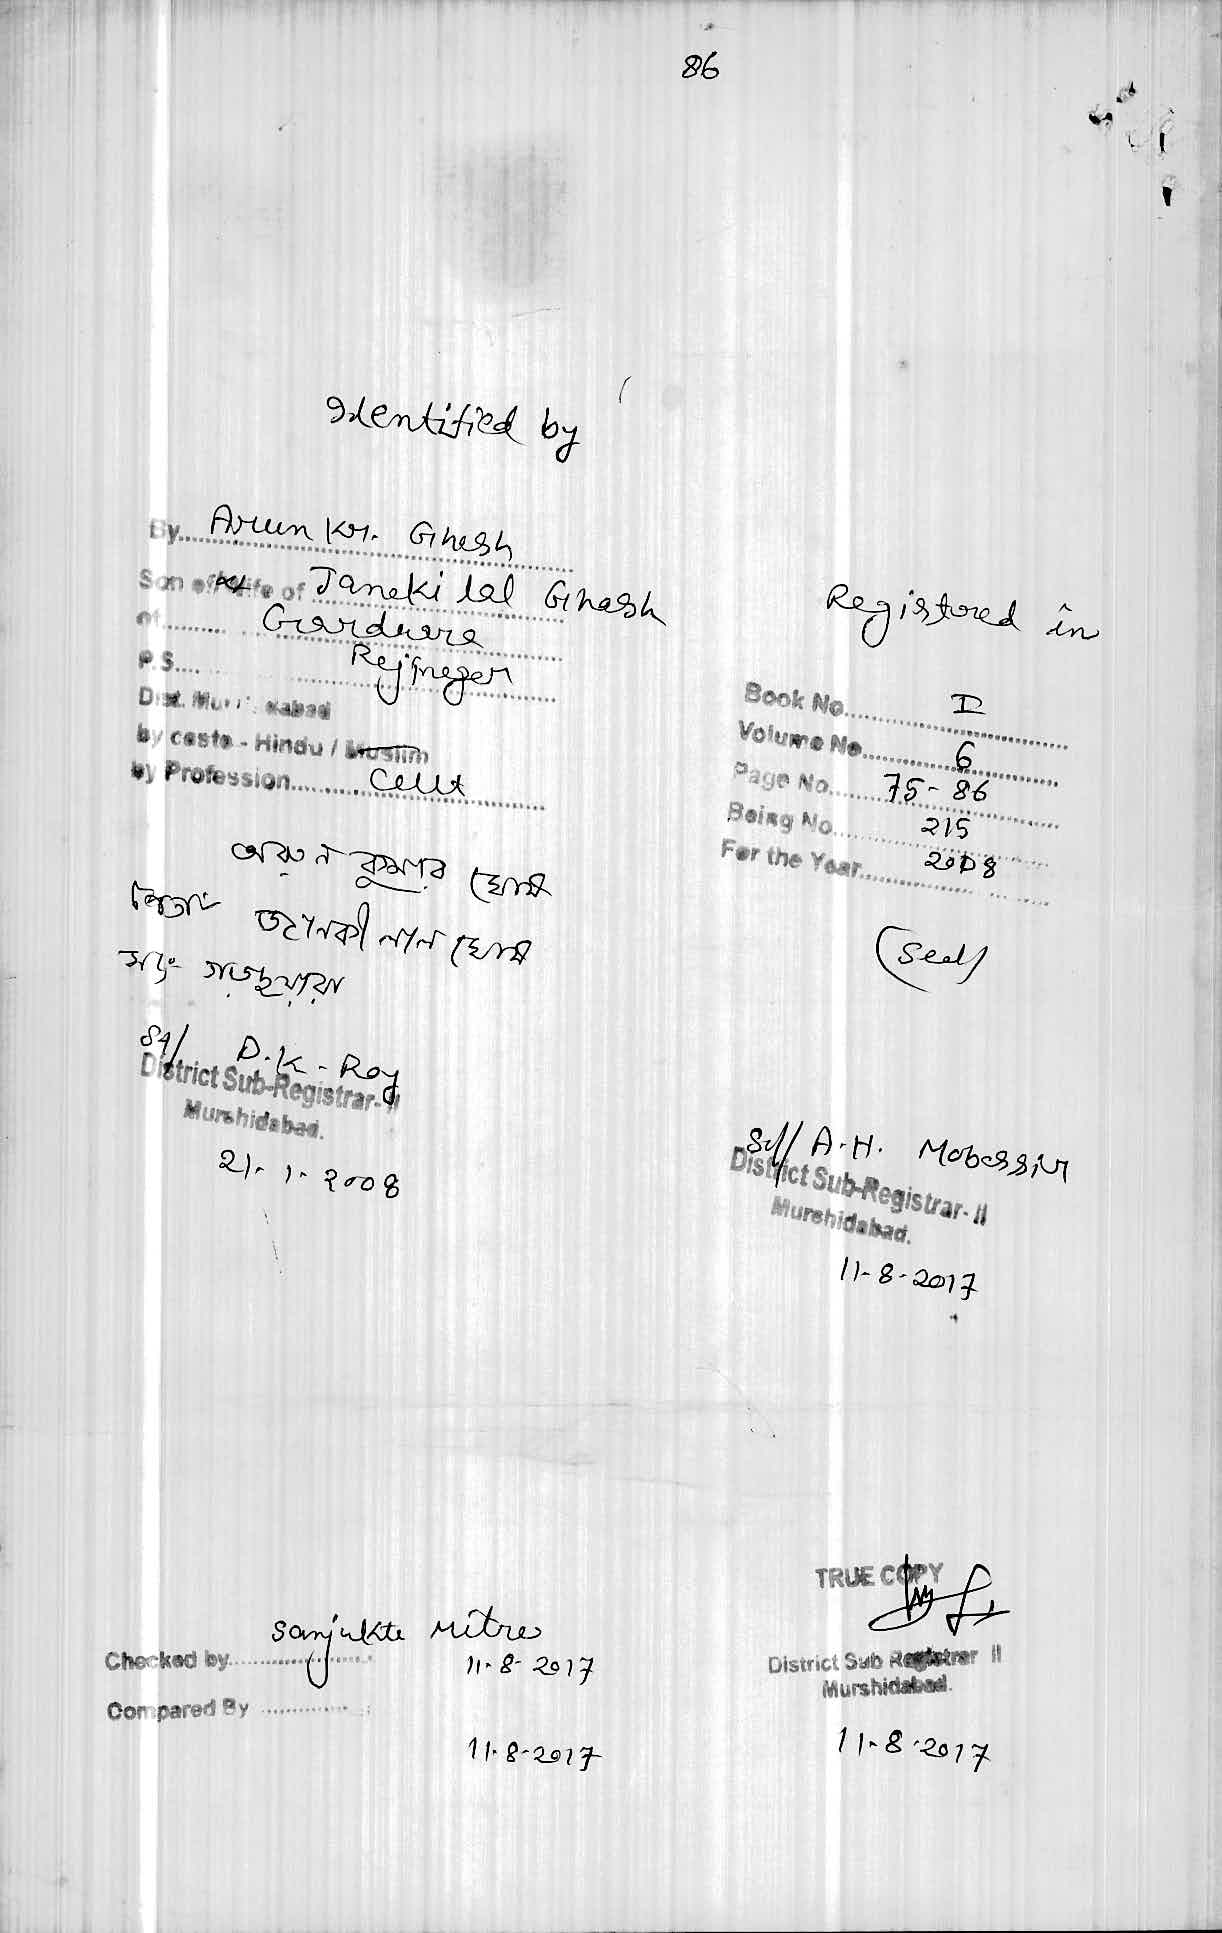 86
Identified by
By Arun Kr. Ghosh
Son of/Wife of Janaki lal Ghosh
of Garduara
P.S. Rejinagar
Dist. Murshidabad
by caste - Hindu / Muslim
by Profession
অরুন কুমার ঘোষ
পিতা- জানকী লাল ঘোষ
সাং- গড়দুয়ারা
Sd/ D.K. Roy
District Sub-Registrar-II
Murshidabad.
21. 1. 2008
Registered in
Book No. I
Volume No. 6
Page No. 75 - 86
Being No. 215
For the Year 2008
(Seal)
Sd/ A.H. Mobassir
District Sub-Registrar-II
Murshidabad.
11-8-2017
Sanjukta Mitra
Checked by 11-8-2017
Compared By
11-8-2017
TRUE COPY
District Sub Registrar II
Murshidabad.
11-8-2017